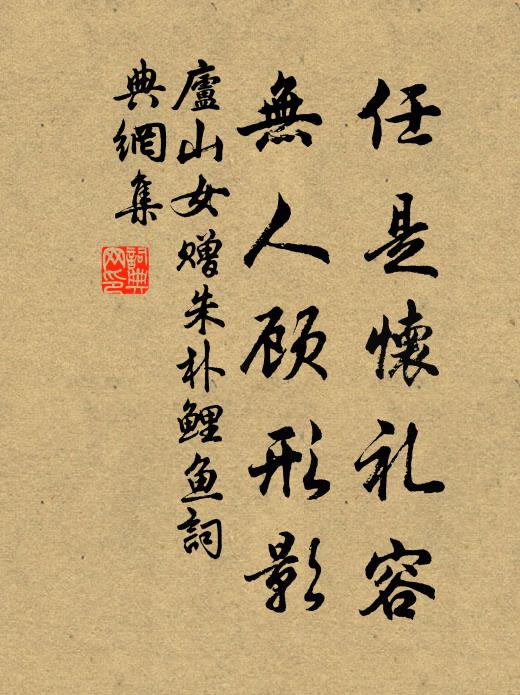 任是懷礼容
無人顾形影
廬山女赠朱朴鲤鱼詞
典網集
詞典
网印